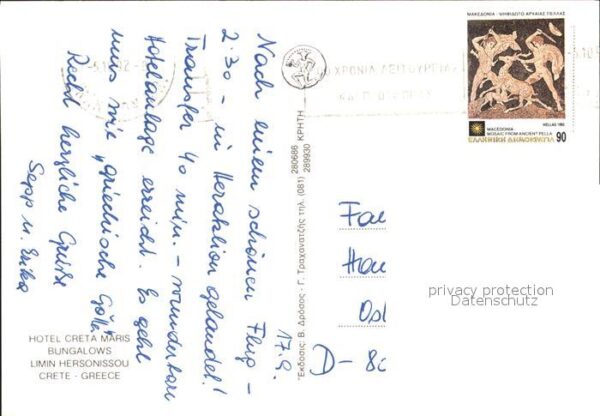 17.9.
Nach einem schönen Flug –
2.30 – in Heraklion gelandet!
Transfer 40 min. – wunderbare
Hotelanlage erreicht. Es geht
uns wie „griechische Götter“
Recht herzliche Grüße
Sepp u. Erika
HOTEL CRETA MARIS
BUNGALOWS
LIMIN HERSONISSOU
CRETE - GREECE
Έκδοσις: Β. Δρόσος - Γ. Τραχανατζής τηλ. (081) 280686 ΚΡΗΤΗ
289930
ΧΡΟΝΙΑ ΛΕΙΤΟΥΡΓΙΑΣ
ΜΑΚΕΔΟΝΙΑ - ΨΗΦΙΔΩΤΟ ΑΡΧΑΙΑΣ ΠΕΛΛΑΣ
HELLAS 1992
MACEDONIA
MOSAIC FROM ANCIENT PELLA
ΕΛΛΗΝΙΚΗ ΔΗΜΟΚΡΑΤΙΑ
90
Fa
Ost
D-8
privacy protection
Datenschutz